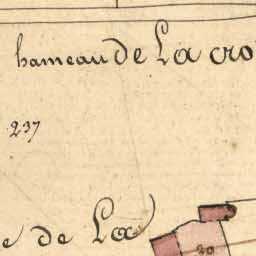 hameau de La cro
237
e de La
20